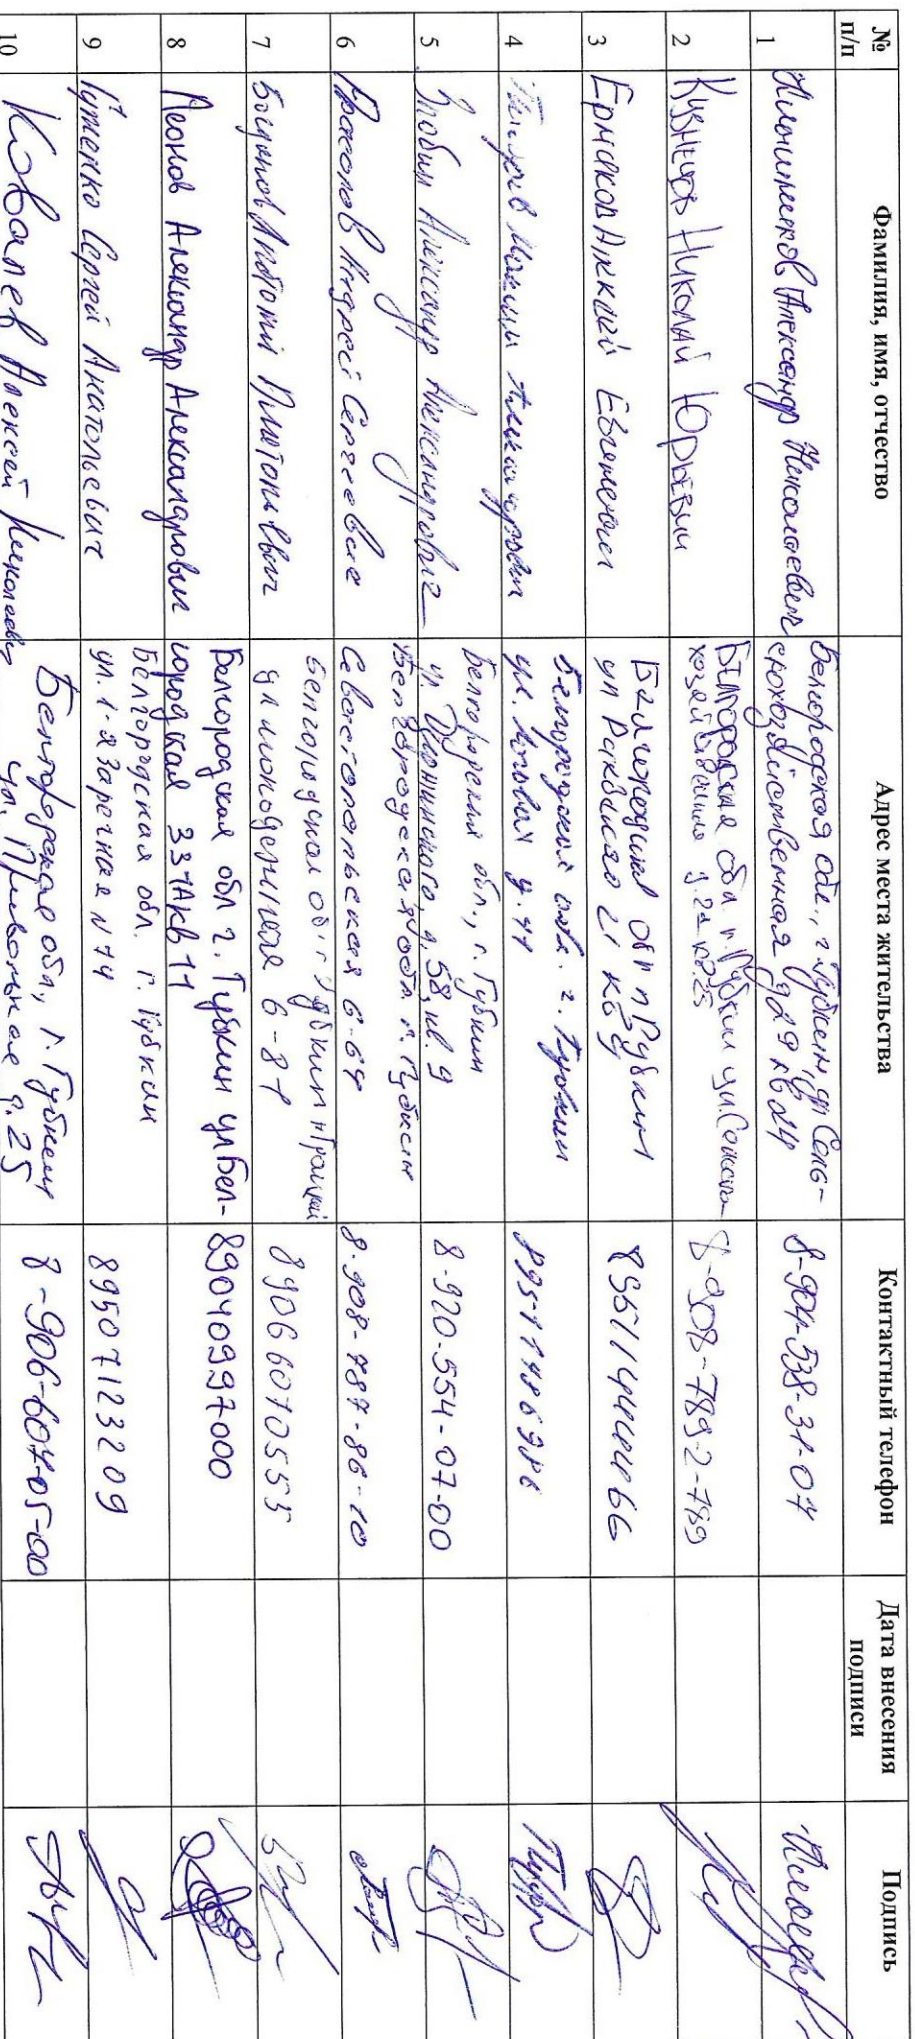 № п/п Фамилия, имя, отчество Адрес места жительства Контактный телефон Дата внесения подписи Подпись
1 Александр Николаевич Белгородская обл., г. Губкин, ул Сель-
скохозяйственная д 9 кв 24 8-904-538-31-07
2 Кузнецов Николай Юрьевич Белгородская обл. г. Губкин ул. д. 2а кв. 25 8-908-7892-789
3 Ермаков Евгеньевич обл г Губкин
ул 21 кв
4 Белгородская обл. г. Губкин
ул. д. 41 89511486986
5 Злобин Александр Александрович Белгородская обл., г. Губкин
ул. Дзержинского, д. 58, кв. 9 8-920-554-07-00
6 Андрей Сергеевич Белгородская обл. г. Губкин
Севастопольская 6-64 8-908-787-86-10
7 Богданов Анатолий Платонович Белгородская обл г Губкин
ул молодежная 6-87 89066070555
8 Леонов Александр Александрович Белгородская обл г. Губкин ул Бел-
городская 337А кв 11 89040997000
9 Сергей Анатольевич Белгородская обл. г. Губкин
ул. 1-я Заречная N 74 89507123209
10 Ковалев Алексей Николаевич Белгородская обл, г. Губкин
ул. Привольная д. 25 8-906-607-05-00